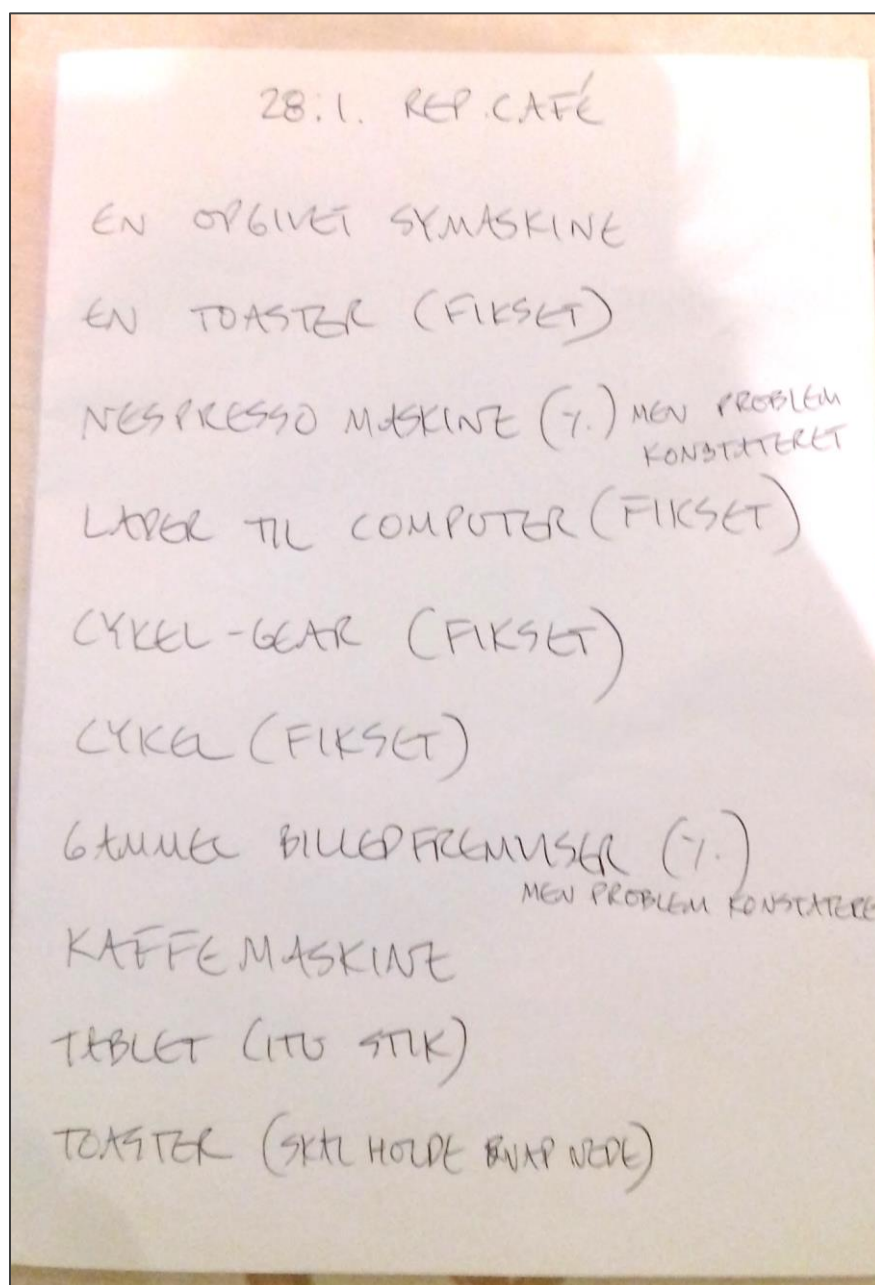 28.1. REP. CAFÉ
EN OPGIVET SYMASKINE
EN TOASTER (FIKSET)
NESPRESSO MASKINE (٪) MEN PROBLEM
KONSTATERET
LADER TIL COMPUTER (FIKSET)
CYKEL-GEAR (FIKSET)
CYKEL (FIKSET)
GAMMEL BILLEDFREMVISER (٪)
MEN PROBLEM KONSTATERE
KAFFEMASKINE
TABLET (ITU STIK)
TOASTER (SKAL HOLDE KNAP NEDE)